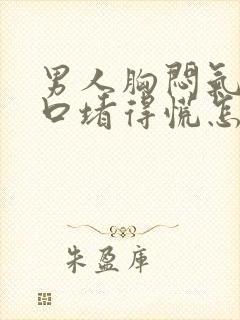 男人胸闷氣
口堵得慌怎
朱盈庫